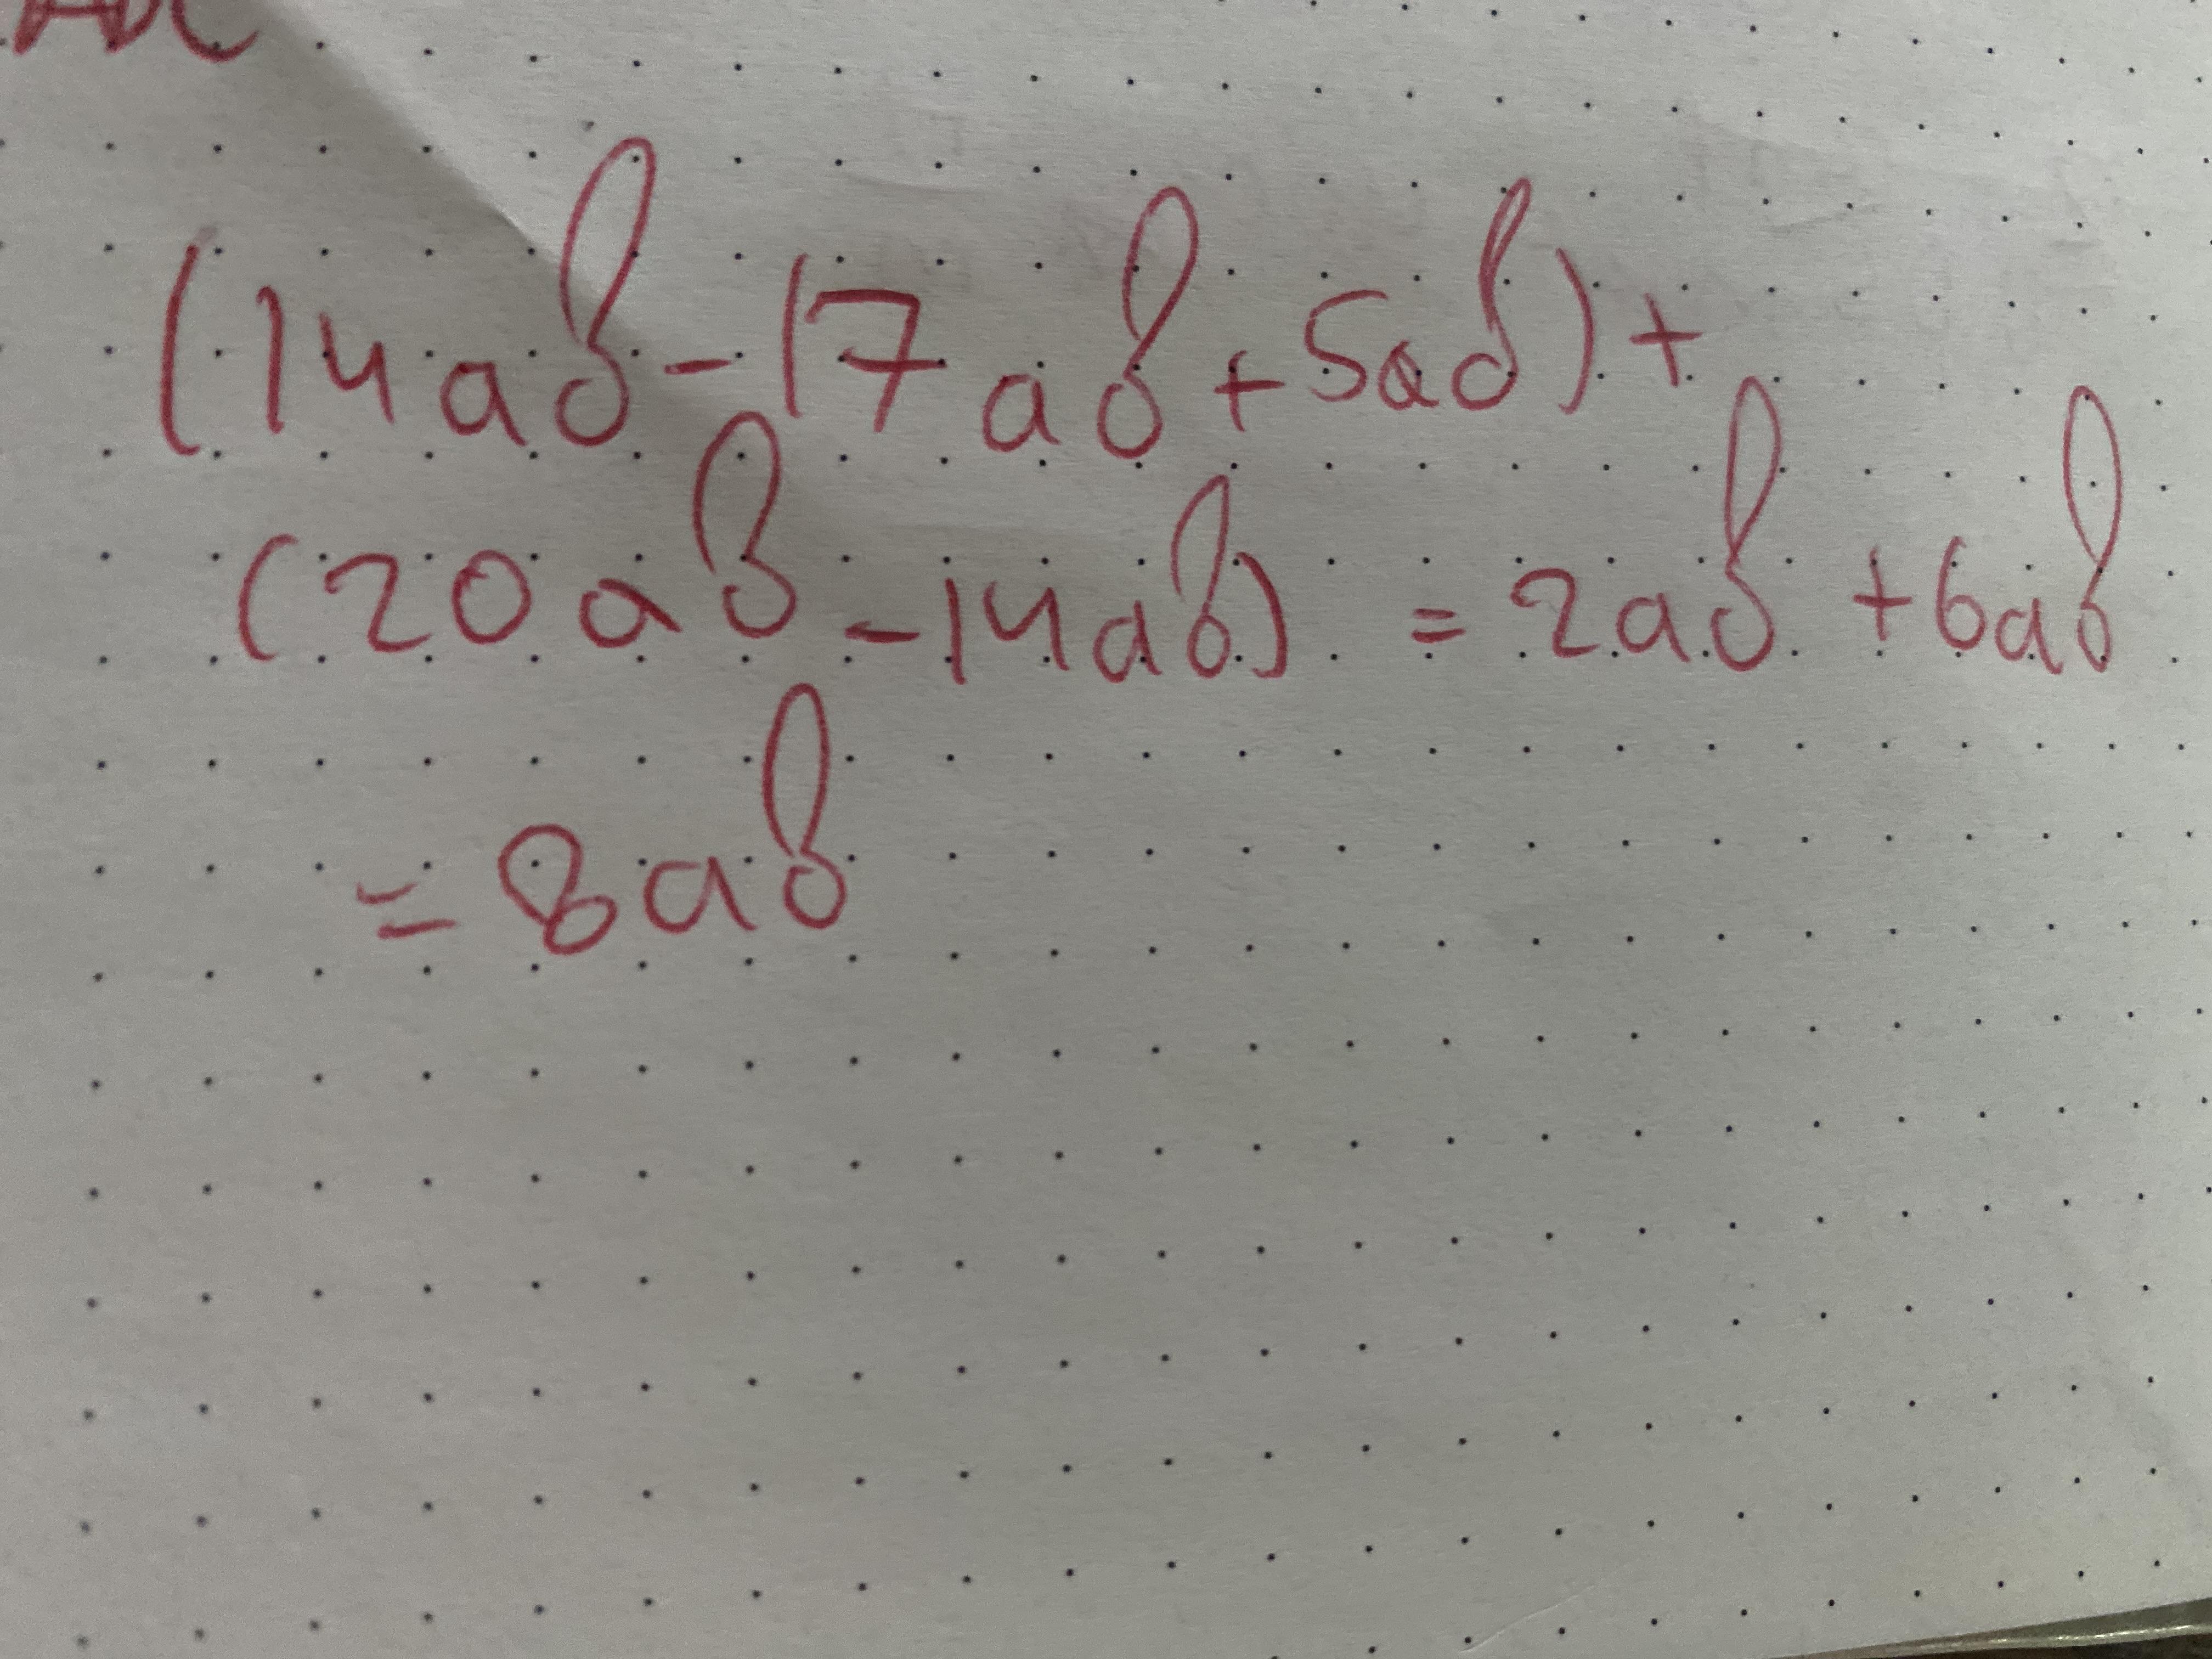 (14ab-17ab+5ab)+
(20ab-14ab) = 2ab +6ab
= 8ab